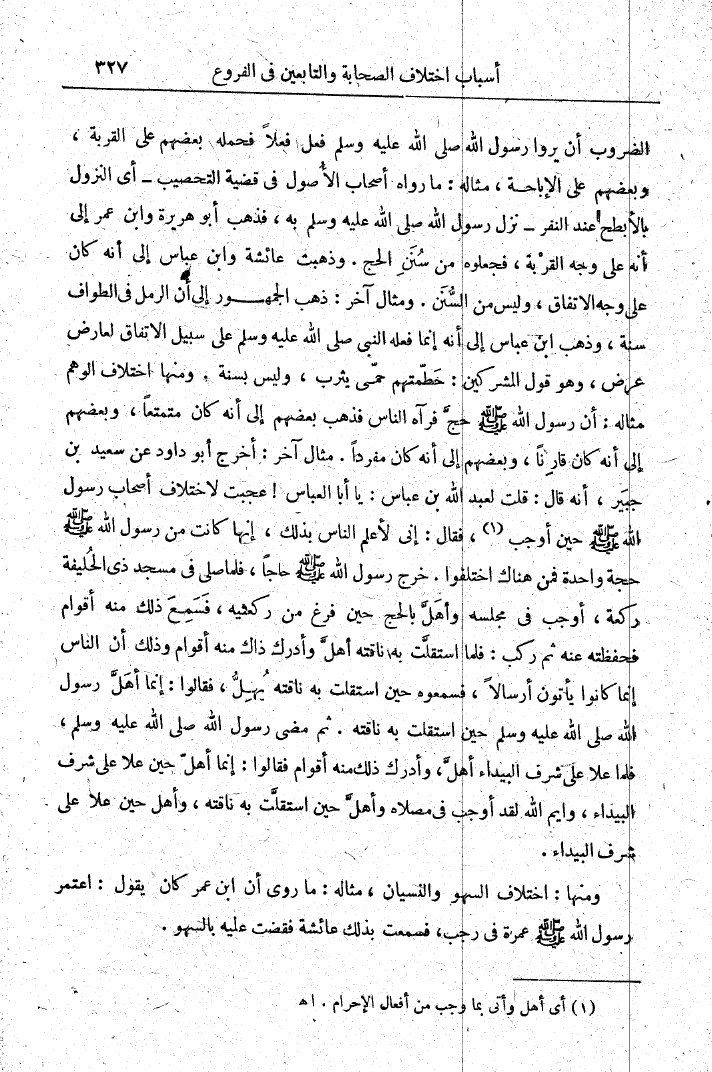 أسباب اختلاف الصحابة والتابعين فى الفروع ٣٢٧
الضروب أن يروا رسول الله صلى الله عليه وسلم فعل فعلاً فحمله بعضهم على القربة ،
وبعضهم على الإباحة ، مثاله : ما رواه أصحاب الأصول فى قضية التحصيب ـ أى النزول
بالأبطح عند النفر ـ نزل رسول الله صلى الله عليه وسلم به ، فذهب أبو هريرة وابن عمر إلى
أنه على وجه القربة ، فجعلوه من سُنَن الحج . وذهبت عائشة وابن عباس إلى أنه كان
على وجه الاتفاق ، وليس من السُّنَن . ومثال آخر : ذهب الجمهور إلى أن الرمل فى الطواف
سنة ، وذهب ابن عباس إلى أنه إنما فعله النبى صلى الله عليه وسلم على سبيل الاتفاق لعارض
عرض ، وهو قول المشركين : حَطَّمتهم حمّى يثرب ، وليس بسنة . ومنها اختلاف الوهم
مثاله : أن رسول الله ﷺ حجَّ فرآه الناس فذهب بعضهم إلى أنه كان متمتعاً ، وبعضهم
إلى أنه كان قارنًا ، وبعضهم إلى أنه كان مفرداً . مثال آخر : أخرج أبو داود عن سعيد بن
جبير ، أنه قال : قلت لعبد الله بن عباس : يا أبا العباس ! عجبت لاختلاف أصحاب رسول
الله ﷺ حين أوجب (١) ، فقال : إنى لأعلم الناس بذلك ، إنها كانت من رسول الله ﷺ
حجة واحدة فمن هناك اختلفوا . خرج رسول الله ﷺ حاجاً ، فلما صلى فى مسجد ذى الحُليفة
ركعة ، أوجب فى مجلسه وأهَلَّ بالحج حين فرغ من ركعتيه ، فَسَمِعَ ذلك منه أقوام
فحفظته عنه ثم ركب : فلما استقلَّت به ناقته أهلَّ وأدرك ذاك منه أقوام وذلك أن الناس
إنما كانوا يأتون أرسالاً ، فسمعوه حين استقلت به ناقته يُهِلُّ ، فقالوا : إنما أهَلَّ رسول
الله صلى الله عليه وسلم حين استقلت به ناقته . ثم مضى رسول الله صلى الله عليه وسلم ،
فلما علا على شرف البيداء أهلَّ ، وأدرك ذلك منه أقوام فقالوا : إنما أهلّ حين علا على شرف
البيداء ، وايم الله لقد أوجب فى مصلاه وأهلَّ حين استقلَّت به ناقته ، وأهل حين علا على
شرف البيداء .
ومنها : اختلاف السهو والنسيان ، مثاله : ما روى أن ابن عمر كان يقول : اعتمر
رسول الله ﷺ عمرة فى رجب ، فسمعت بذلك عائشة فقضت عليه بالسهو .
(١) أى أهل وأتى بما وجب من أفعال الإحرام . اه